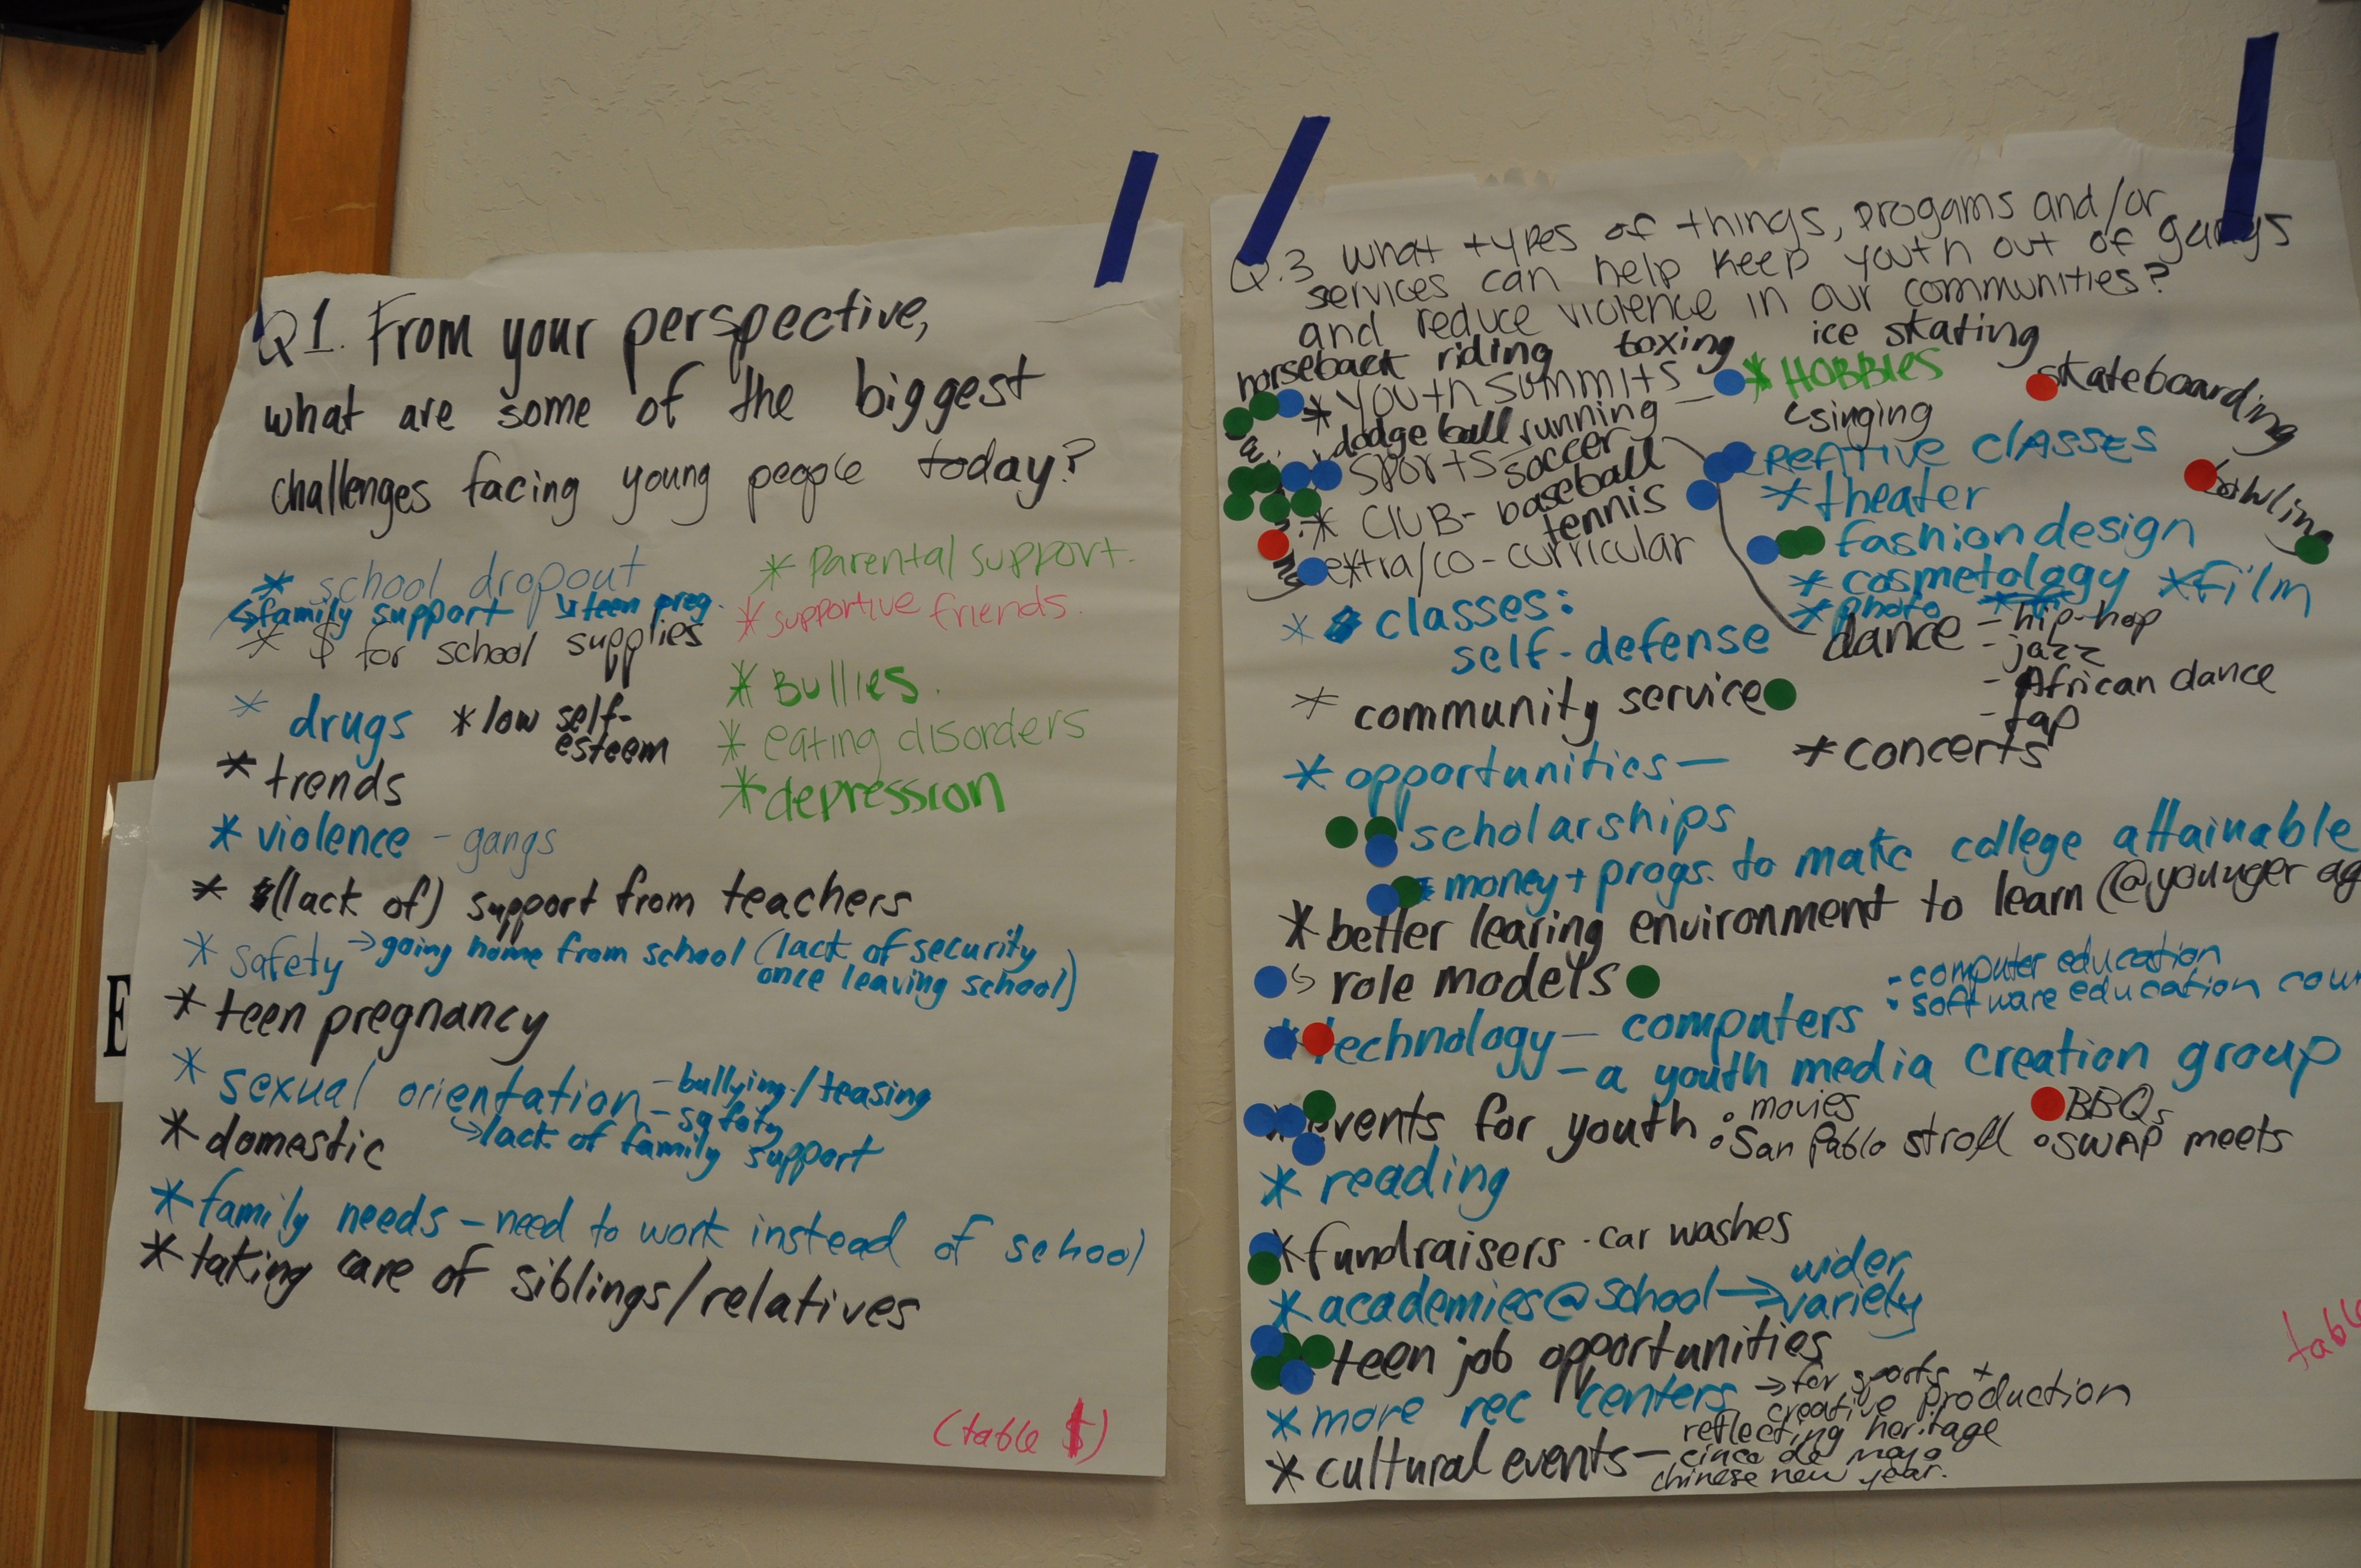 Q1. From your perspective,
what are some of the biggest
challenges facing young people today?
* school dropout
↳family support ↘teen preg.
* $ for school supplies
* drugs * low self-
esteem
* trends
* violence - gangs
* (lack of) support from teachers
* safety →going home from school (lack of security
once leaving school)
* teen pregnancy
* sexual orientation - bullying/teasing
- safety
↳lack of family support
* domestic
* family needs - need to work instead of school
* taking care of siblings/relatives
* Parental support.
* supportive friends.
* Bullies.
* eating disorders
* depression
(table $)
E
Q.3 what types of things, progams and/or
services can help keep youth out of gangs
and reduce violence in our communities?
horseback riding boxing ice skating
* Youth summits -
* HOBBIES
↳singing
skateboarding
bowling
dodge ball running
sports - soccer
* CLUB - baseball
tennis
extra/co-curricular
CREATIVE CLASSES
* theater
fashion design
* cosmetology * film
* photo
dance - hip-hop
- jazz
- African dance
- tap
* concerts
* classes:
self-defense
* community service
* opportunities -
scholarships
* money + progs. to make college attainable
* better learing environment to learn (@ younger
↳ role models
technology - computers
- computer education
• software education
- a youth media creation group
* events for youth ° movies
° San Pablo stroll
BBQs
° SWAP meets
* reading
* fundraisers · car washes
* academies @ school → wider
variety
teen job opportunities
* more rec centers → for sports +
creative production
* cultural events - reflecting heritage
cinco de mayo
chinese new year.